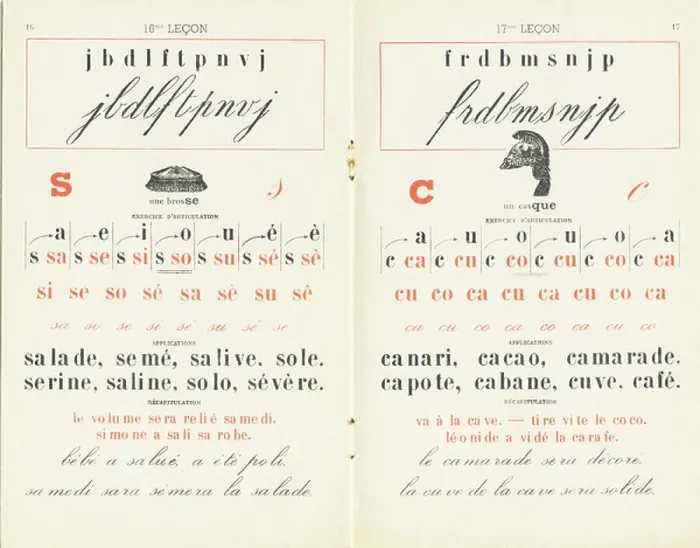 16
16me LEÇON
j b d l f t p n v j
jbdlftpnvj
S
s
une brosse
EXERCICE D'ARTICULATION
a e i o u é è
s sa s se s si s so s su s sé s sè
si se so sé sa sè su sê
sa so se si sé su sè se
APPLICATIONS
salade, semé, salive. sole.
serine, saline, solo, sévère.
RÉCAPITULATION
le volume sera relié samedi.
simone a sali sa robe.
bébé a salué, a été poli.
samedi sara sèmera la salade.
17me LEÇON
17
f r d b m s n j p
frdbmsnjp
C
c
un casque
EXERCICE D'ARTICULATION
a u o u o a
c ca c cu c co c cu c co c ca
cu co ca cu ca cu co ca
ca cu co ca co ca cu co
APPLICATIONS
canari, cacao, camarade.
capote, cabane, cuve, café.
RÉCAPITULATION
va à la cave. — tire vite le coco.
léonide a vidé la carafe.
le camarade sera décoré.
la cuve de la cave sera solide.